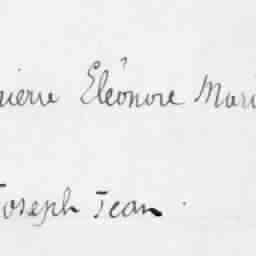 Pierre Eléonore Mari
Joseph Jean.